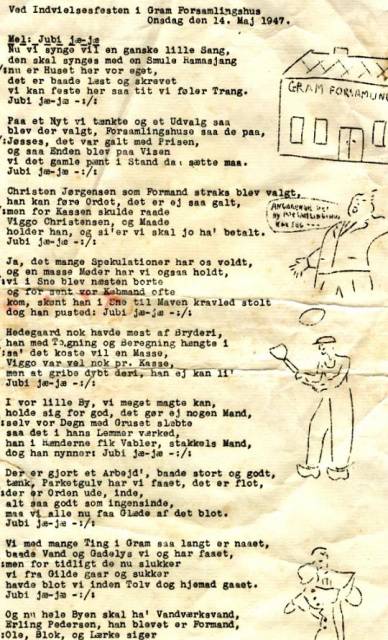 Ved Indvielsesfesten i Gram Forsamlingshus
Onsdag den 14. Maj 1947.
Mel: Jubi jæ-jæ
Nu vi synge vil en ganske lille Sang,
den skal synges med en Smule Ramasjang
:nu er Huset her vor eget,
det er baade Læst og skrevet
vi kan feste her saa tit vi føler Trang.
Jubi jæ-jæ -:/:
GRAM FORSAMLING
Paa et Nyt vi tænkte og et Udvalg saa
blev der valgt, Forsamlingshuse saa de paa,
:Jøsses, det var galt med Prisen,
og saa Enden blev paa Visen
vi det gamle pænt i Stand da sætte maa.
Jubi jæ-jæ -:/:
Christen Jørgensen som Formand straks blev valgt,
han kan føre Ordet, det er ej saa galt,
:men for Kassen skulde raade
Viggo Christensen, og Maade
holder han, og si'er i skal jo ha' betalt.
Jubi jæ-jæ -:/:
ANGAAENDE DET
Ja, det mange Spekulationer har os voldt,
og en masse Møder har vi ogsaa holdt,
:vi i Sne blev næsten borte
og for sent vor Købmand ofte
kom, skønt han i Sne til Maven kravled stolt
dog han pusted: Jubi jæ-jæ -:/:
Hedegaard nok havde mest af Bryderi,
han med Tegning og Beregning hængte i
:sa' det koste vil en Masse,
Viggo var vel nok pr. Kasse,
men at gribe dybt deri, han ej kan li'
Jubi jæ-jæ -:/:
I vor lille By, vi meget magte kan,
holde sig for god, det gør ej nogen Mand,
:selv vor Degn med Gruset slæbte
saa det i hans Lemmer værked,
han i Hænderne fik Vabler, stakkels Mand,
dog han nynner: Jubi jæ-jæ -:/:
Der er gjort et Arbejd', baade stort og godt,
tænk, Parketgulv har vi faaet, det er flot,
:der er Orden ude, inde,
alt saa godt som ingensinde,
maa vi alle nu faa Glæde af det blot.
Jubi jæ-jæ -:/:
Vi med mange Ting i Gram saa langt er naaet,
baade Vand og Gadelys vi og har faaet,
:men for tidligt de nu slukker
vi fra Gilde gaar og sukker
havde blot vi inden Tolv dog hjemad gaaet.
Jubi jæ-jæ -:/:
Og nu hele Byen skal ha' Vandværksvand,
Erling Pedersen, han blevet er Formand,
:Ole, Blok, og Lærke siger